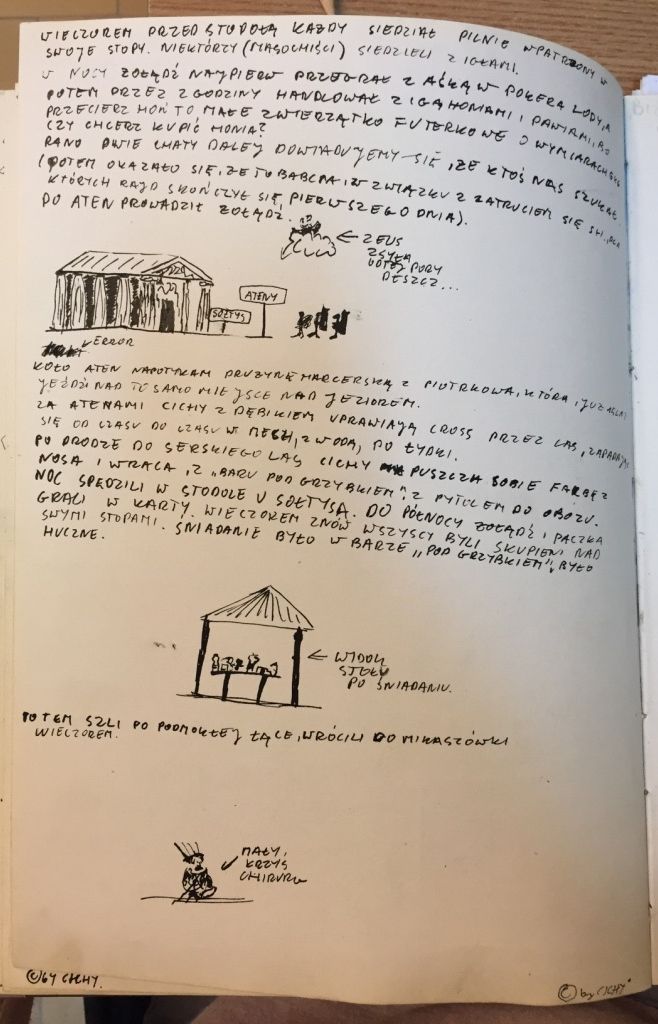 WIECZOREM PRZED STODOŁĄ KAŻDY SIEDZIAŁ PILNIE WPATRZONY W
SWOJE STOPY. NIEKTÓRZY (MASOCHIŚCI) SIEDZIELI Z IGŁAMI.
W NOCY ŻOŁĄDŹ NAJPIERW PRZEGRAŁ Z AŚKĄ W POKERA LODY, A
POTEM PRZEZ 2 GODZINY HANDLOWAŁ Z IGĄ HONIAMI I PAWIAMI, BO
PRZECIERZ HOŃ TO MAŁE ZWIERZĄTKO FUTERKOWE O WYMIARACH
CZY CHCERZ KUPIĆ HONIA?
RANO DWIE CHATY DALEJ DOWIADUJEMY SIĘ, ŻE KTOŚ NAS SZUKAŁ
(POTEM OKAZAŁO SIĘ, ŻE TO BABCIA, W ZWIĄZKU Z ZATRUCIEM SIĘ
KTÓRYCH RAJD SKOŃCZYŁ SIĘ PIERWSZEGO DNIA).
DO ATEN PROWADZIŁ ŻOŁĄDŹ.
← ZEUS
ZSYŁA
OD TEJ PORY
DESZCZ...
ATENY
SOŁTYS
ERROR
KOŁO ATEN NAPOTYKAM DRUŻYNĘ HARCERSKĄ Z PIOTRKOWA, KTÓRA, JUŻ
JEŹDZI NAD TO SAMO MIEJSCE NAD JEZIOREM.
ZA ATENAMI CICHY Z DĘBIKIEM UPRAWIAJĄ CROSS PRZEZ LAS, ZAPADAJĄC
SIĘ OD CZASU DO CZASU W MECH, Z WODĄ, PO ŁYDKI.
PO DRODZE DO SERSKIEGO LAS CICHY PUSZCZA SOBIE FARBĘ Z
NOSA I WRACA, Z „BARU POD GRZYBKIEM”, Z PYTLEM DO OBOZU.
NOC SPĘDZILI W STODOLE U SOŁTYSA. DO PÓŁNOCY ŻOŁĄDŹ I PACZKA
GRALI W KARTY. WIECZOREM ZNÓW WSZYSCY BYLI SKUPIENI NAD
SWYMI STOPAMI. ŚNIADANIE BYŁO W BARZE „POD GRZYBKIEM”, BYŁO
HUCZNE.
← WIDOK
STOŁU
PO ŚNIADANIU.
POTEM SZLI PO PODMOKŁEJ ŁĄCE, WRÓCILI DO MIKASZÓWKI
WIECZOREM.
MAŁY,
KRZYŚ
CHIRURG
©by CICHY.
© by CICHY.